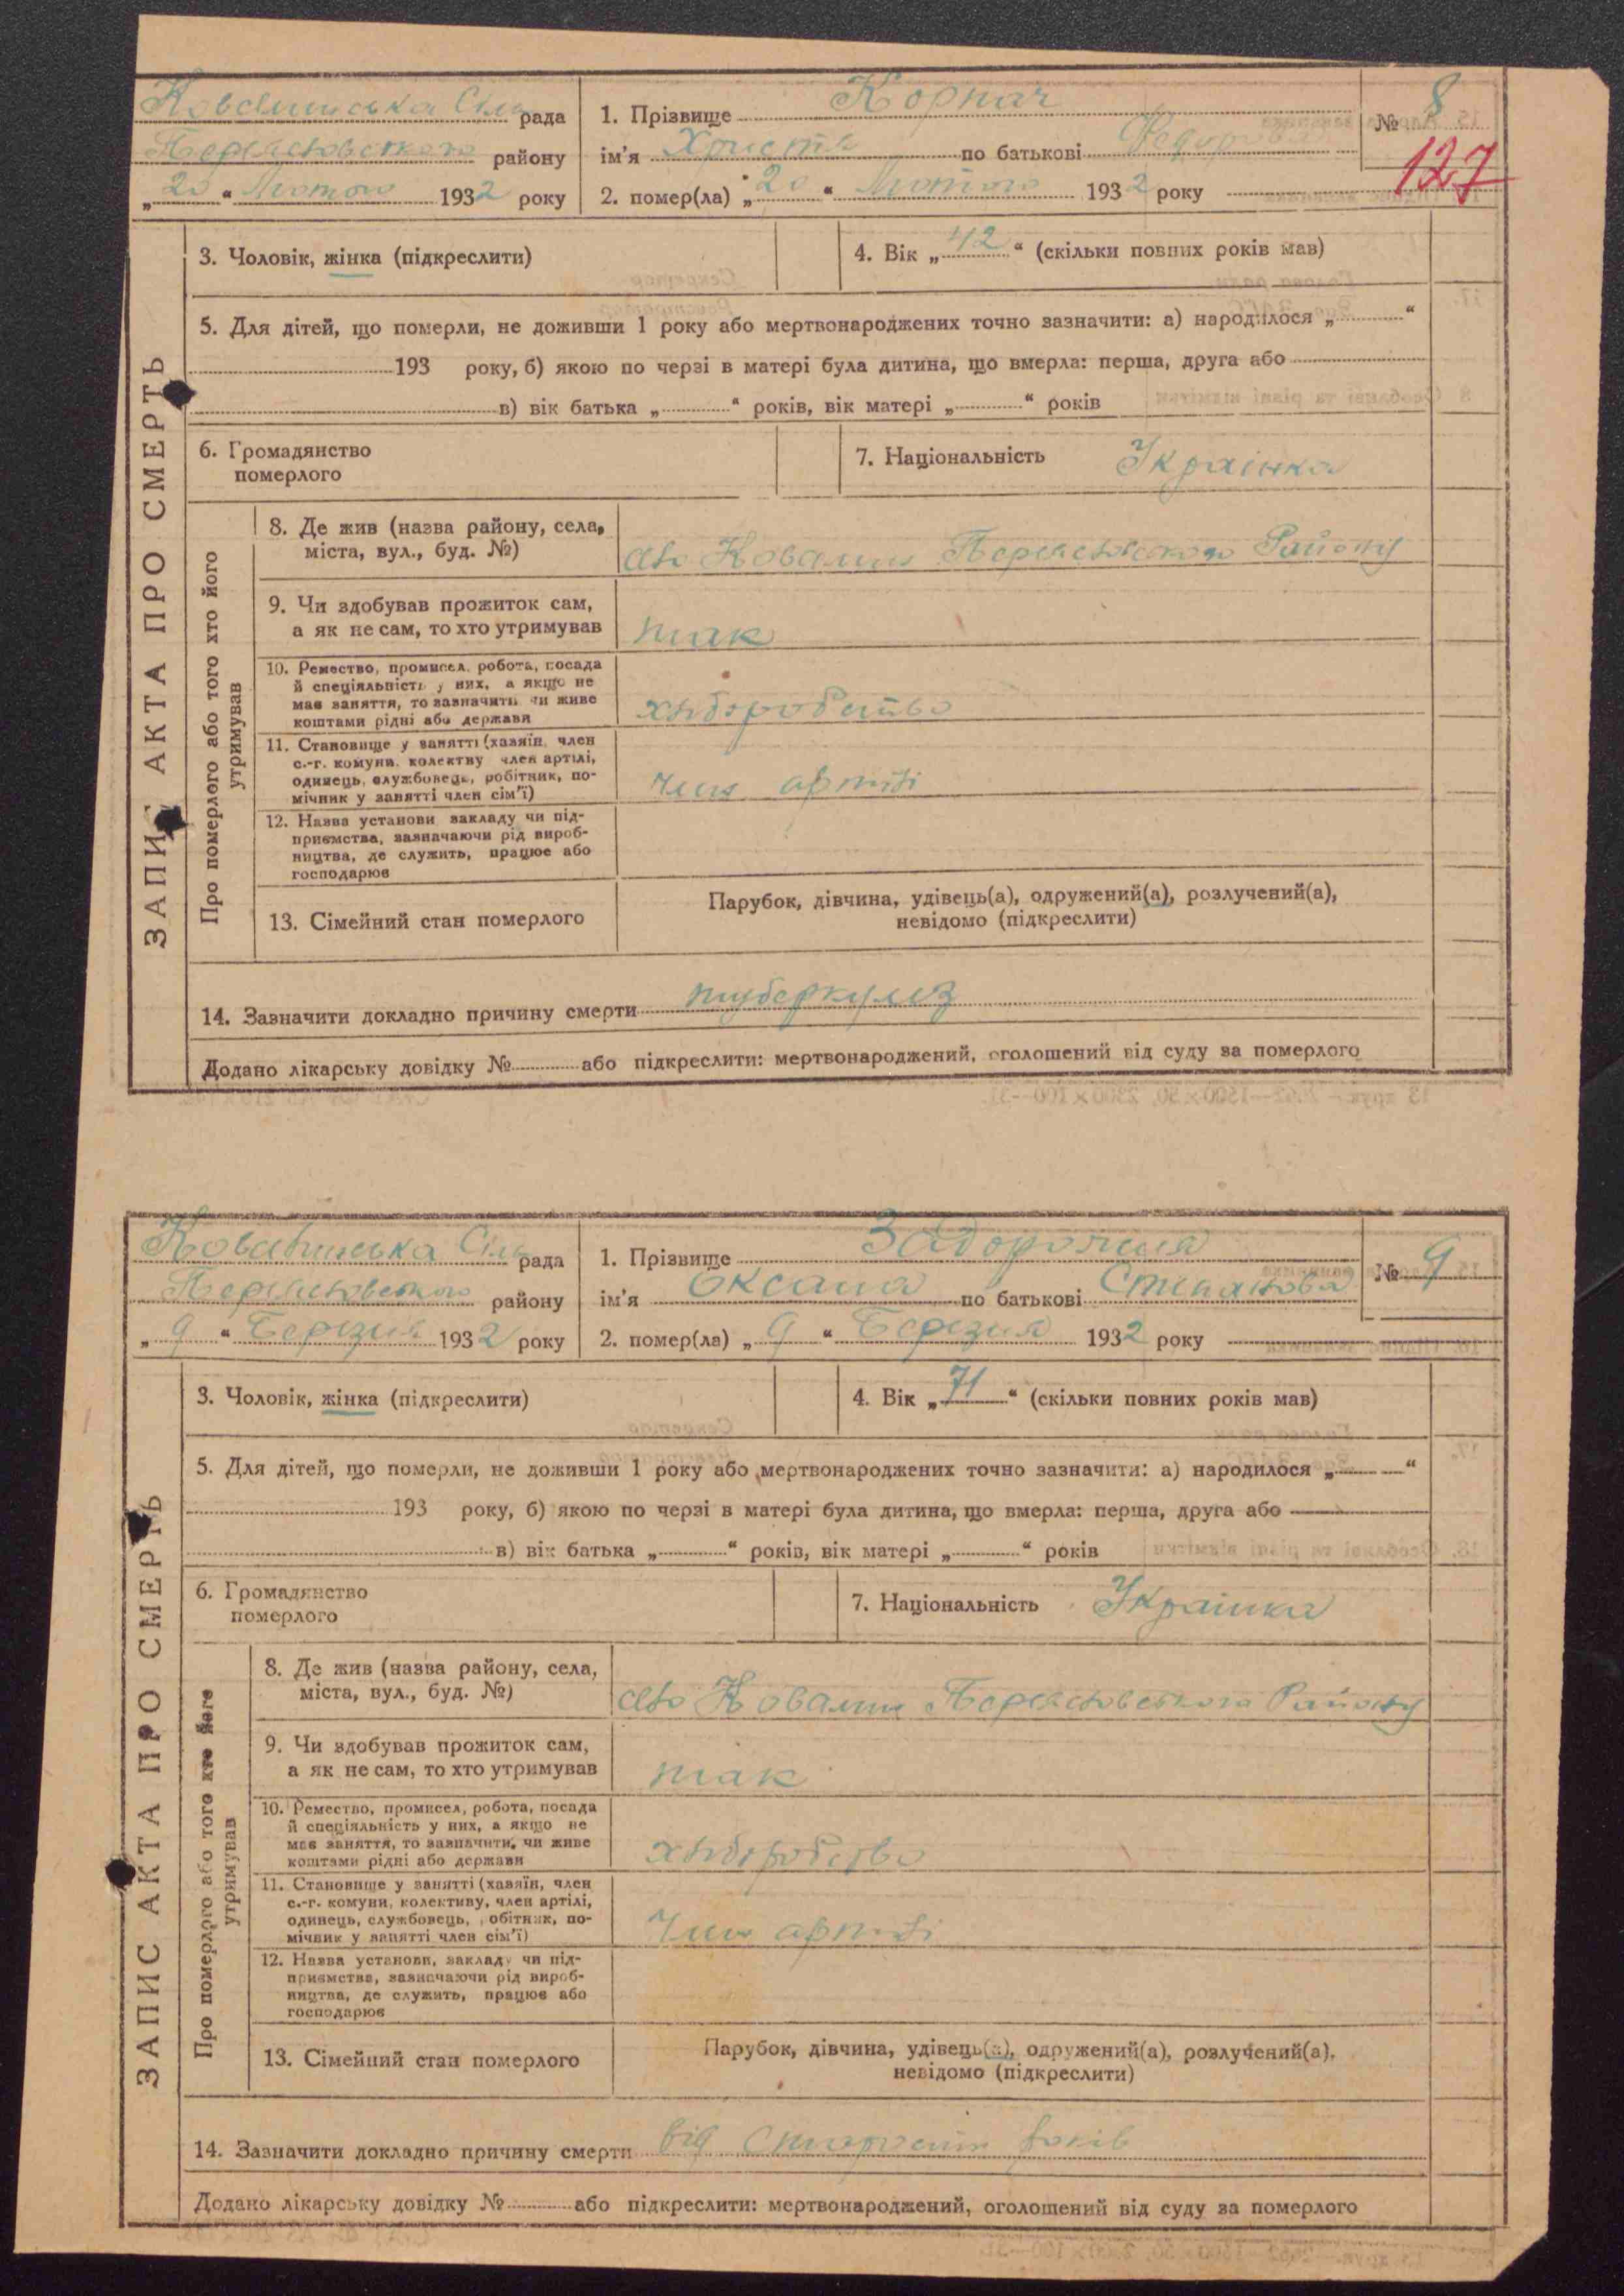 Ковалинська Сіль рада
Переяславського району
„20“ Лютого 1932 року
1. Прізвище Корпач
ім'я Христя по батькові Федор
2. помер(ла) „20“ Лютого 1932 року
№ 8
127
ЗАПИС АКТА ПРО СМЕРТЬ
3. Чоловік, жінка (підкреслити)
4. Вік „42“ (скільки повних років мав)
5. Для дітей, що померли, не доживши 1 року або мертвонароджених точно зазначити: а) народилося „ “
193 року, б) якою по черзі в матері була дитина, що вмерла: перша, друга або
в) вік батька „ “ років, вік матері „ “ років
6. Громадянство
померлого
7. Національність Українка
Про померлого або того хто його
утримував
8. Де жив (назва району, села,
міста, вул., буд. №)
село Ковалин Переяславського Району
9. Чи здобував прожиток сам,
а як не сам, то хто утримував
так
10. Ремество, промисел, робота, посада
й спеціяльність у них, а якщо не
має заняття, то зазначити чи живе
коштами рідні або держави
хліборобство
11. Становище у занятті (хазяїн, член
с.-г. комуни, колективу член артілі,
одинець, службовець, робітник, по-
мічник у занятті член сім'ї)
член артілі
12. Назва установи закладу чи під-
приємства, зазначаючи рід вироб-
ництва, де служить, працює або
господарює
13. Сімейний стан померлого
Парубок, дівчина, удівець(а), одружений(а), розлучений(а),
невідомо (підкреслити)
14. Зазначити докладно причину смерти туберкулез
Додано лікарську довідку № або підкреслити: мертвонароджений, оголошений від суду за померлого
Ковалинська Сіль рада
Переяславського району
„9“ Березня 1932 року
1. Прізвище Задорожня
ім'я Оксана по батькові Степанова
2. помер(ла) „9“ Березня 1932 року
№ 9
ЗАПИС АКТА ПРО СМЕРТЬ
3. Чоловік, жінка (підкреслити)
4. Вік „71“ (скільки повних років мав)
5. Для дітей, що померли, не доживши 1 року або мертвонароджених точно зазначити: а) народилося „ “
193 року, б) якою по черзі в матері була дитина, що вмерла: перша, друга або
в) вік батька „ “ років, вік матері „ “ років
6. Громадянство
померлого
7. Національність Українка
Про померлого або того хто його
утримував
8. Де жив (назва району, села,
міста, вул., буд. №)
село Ковалин Переяславського Району
9. Чи здобував прожиток сам,
а як не сам, то хто утримував
так
10. Ремество, промисел, робота, посада
й спеціяльність у них, а якщо не
має заняття, то зазначити, чи живе
коштами рідні або держави
хліборобство
11. Становище у занятті (хазяїн, член
с.-г. комуни, колективу, член артілі,
одинець, службовець, робітник, по-
мічник у занятті член сім'ї)
член артілі
12. Назва установи, закладу чи під-
приємства, зазначаючи рід вироб-
ництва, де служить, працює або
господарює
13. Сімейний стан померлого
Парубок, дівчина, удівець(а), одружений(а), розлучений(а),
невідомо (підкреслити)
14. Зазначити докладно причину смерти від старости років
Додано лікарську довідку № або підкреслити: мертвонароджений, оголошений від суду за померлого